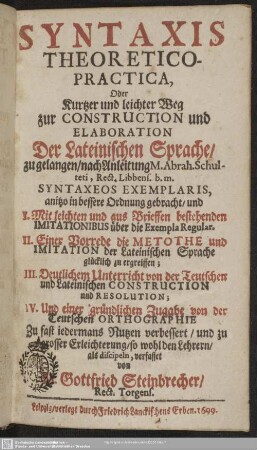 SYNTAXIS
THEORETICO-
PRACTICA,
Oder
Kurtzer und leichter Weg
zur CONSTRUCTION und
ELABORATION
Der Lateinischen Sprache/
zu gelangen/nach Anleitung M. Abrah. Schul-
teti, Rect. Libbens. b. m.
SYNTAXEOS EXEMPLARIS,
anitzo in bessere Ordnung gebracht/ und
I. Mit leichten und aus Brieffen bestehenden
IMITATIONIBUS über die Exempla Regular.
II. Einer Vorrede die METOTHE und
IMITATION der Lateinischen Sprache
glücklich zu ergreiffen;
III. Deutlichem Unterricht von der Teutschen
und Lateinischen CONSTRUCTION
und RESOLUTION;
IV. Und einer gründlichen Zugabe von der
Teutschen ORTHOGRAPHIE
Zu fast iedermans Nutzen verbessert/ und zu
grosser Erleichterung/ so wohl den Lehrern/
als discipeln, verfasset
von
Gottfried Steinbrecher/
Rect. Torgens.
Leipzig/verlegt durch Friedrich Lanckischens Erben. 1699.